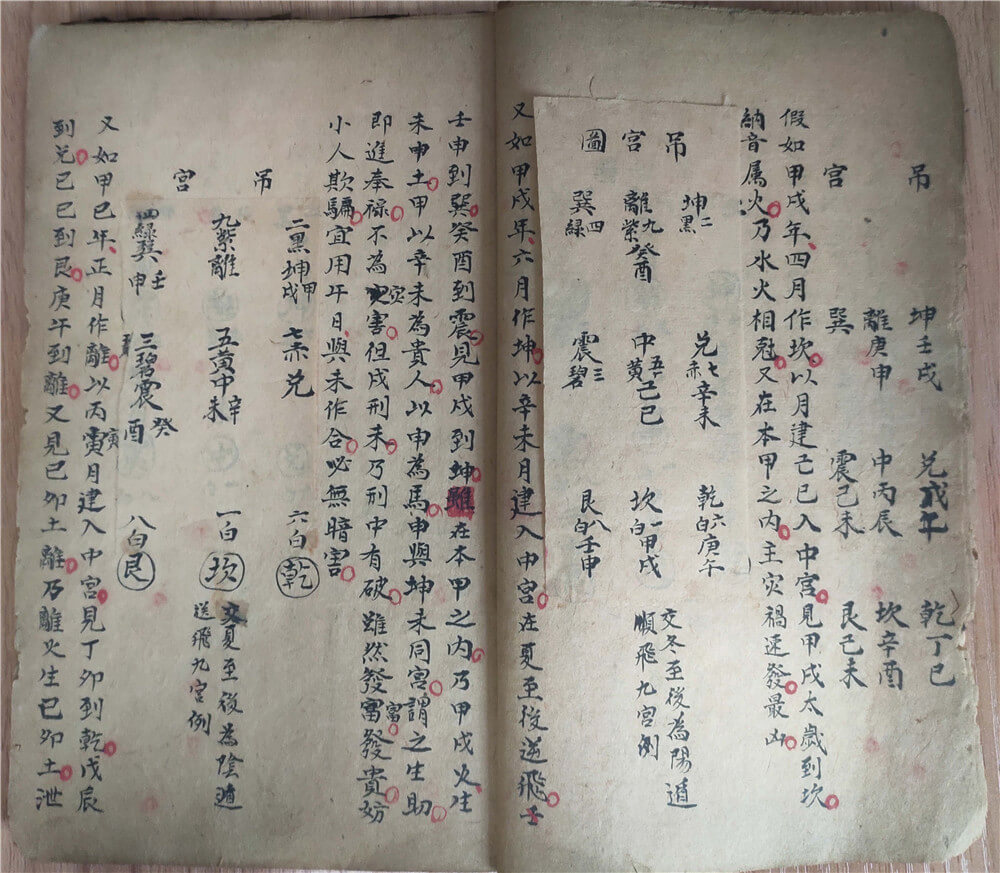 吊 宮
坤壬戌 兌戊午 乾丁巳
離庚申 中丙辰 坎辛酉
巽 震己未 艮己未
假如甲戌年四月作坎以月建己巳入中宮見甲戌太歲到坎
納音属火乃水火相尅又在本甲之內主灾禍速發最凶
吊宮圖
坤二黑 兌七赤辛未 乾六白庚午
離九紫癸酉 中五黃己巳 坎一白甲戌
巽四綠 震三碧 艮八白壬申
交冬至後為陽遁
順飛九宮例
又如甲戌年六月作坤以辛未月建入中宮在夏至後逆飛壬
壬申到巽癸酉到震見甲戌到坤雖在本甲之內乃甲戌火生
未申土甲以辛未為貴人以申為馬申與坤未同宮謂之生助
即進奉禄不為灾害但戌刑未乃刑中有破雖然發富發貴妨
小人欺騙宜用午日與未作合必無暗害
吊 宮
二黑坤甲戌 七赤兌 六白乾
九紫離 五黃中辛未 一白坎
四綠巽壬申 三碧震癸酉 八白艮
交夏至後為陰遁
送飛九宮例
又如甲巳年正月作離以丙寅月建入中宮見丁卯到乾戊辰
到兌己巳到艮庚午到離又見己卯土離乃離火生己卯土泄